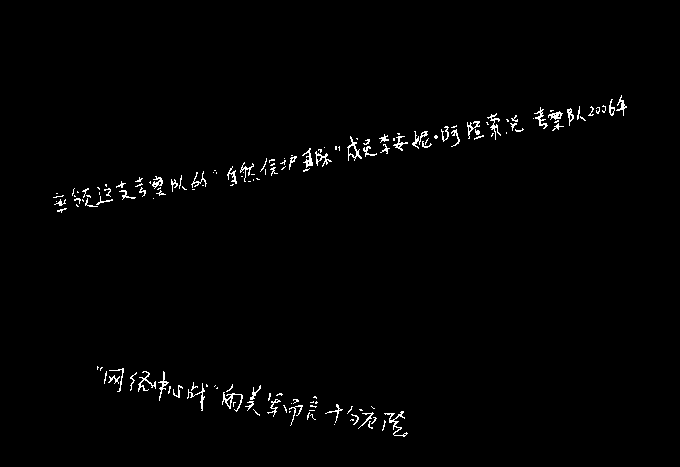 率领这支考察队的“自然保护基际”成员李安妮·阿隆索说 考察队2006年
“网络中心战”的美军而言十分危险